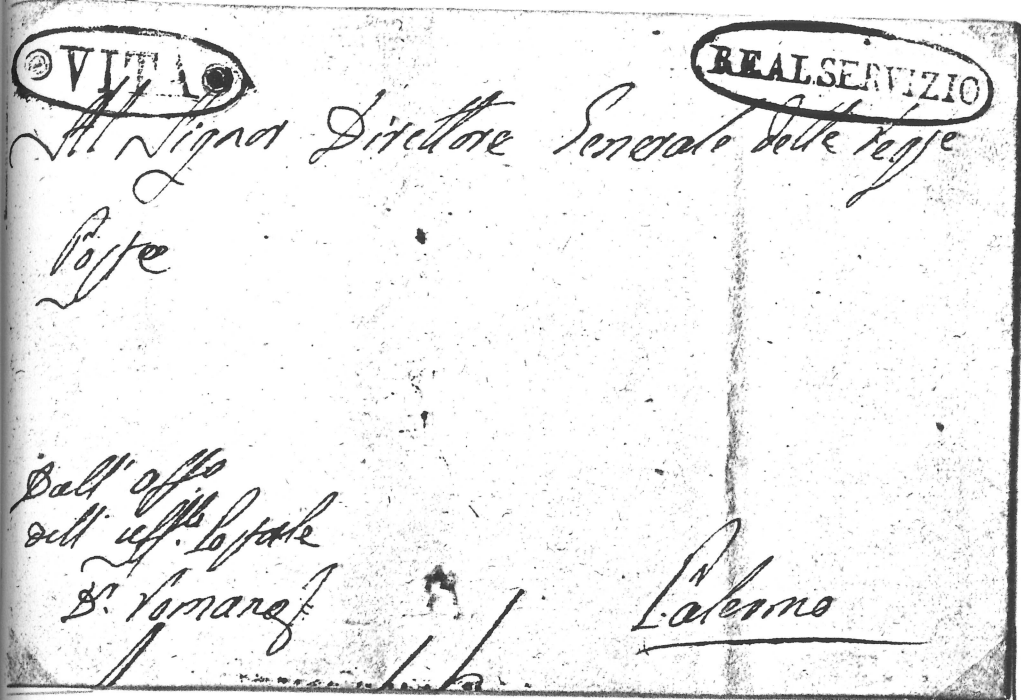 VITA
REAL SERVIZIO
Al Signor Direttore Generale delle Regie
Poste
Dall' offo
dell' uff.le Postale
D. Romano
Palermo